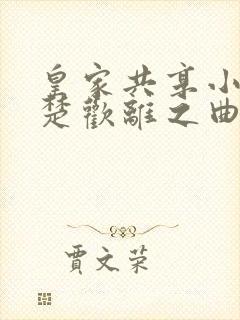 皇家共享小
楚歡離之曲
賈文荣